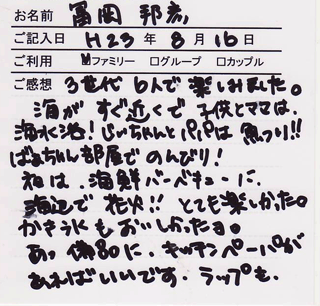 お名前 冨岡 邦彦
ご記入日 H23 年 8 月 16 日
ご利用 ☑ファミリー □グループ □カップル
ご感想 3世代 6人で 楽しみました。
海が すぐ近くで 子供とママは、
海水浴!じいちゃんとパパは 魚つり!!
ばあちゃん部屋で のんびり!
夜は、海鮮バーベキューに、
海辺で 花火!! とても楽しかった。
かき氷も おいしかったヨ。
あっ 備品に、キッチンペーパーが
あればいいです。ラップも、